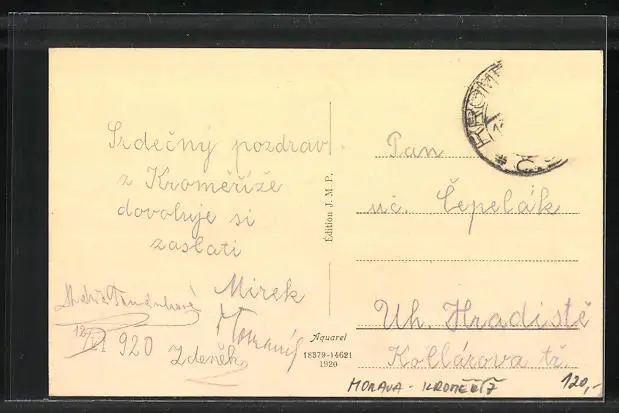 Srdečný pozdrav
z Kroměříže
dovoluje si
zaslati
Mirek
12/VI 920
Zdeněk
Édition J. M. P.
Aquarel
18379-14621
1920
KROMĚ
Pan
uč. Čepelák
Uh. Hradiště
Kollárova tř.
MORAVA - KROMĚŘÍŽ
120,-